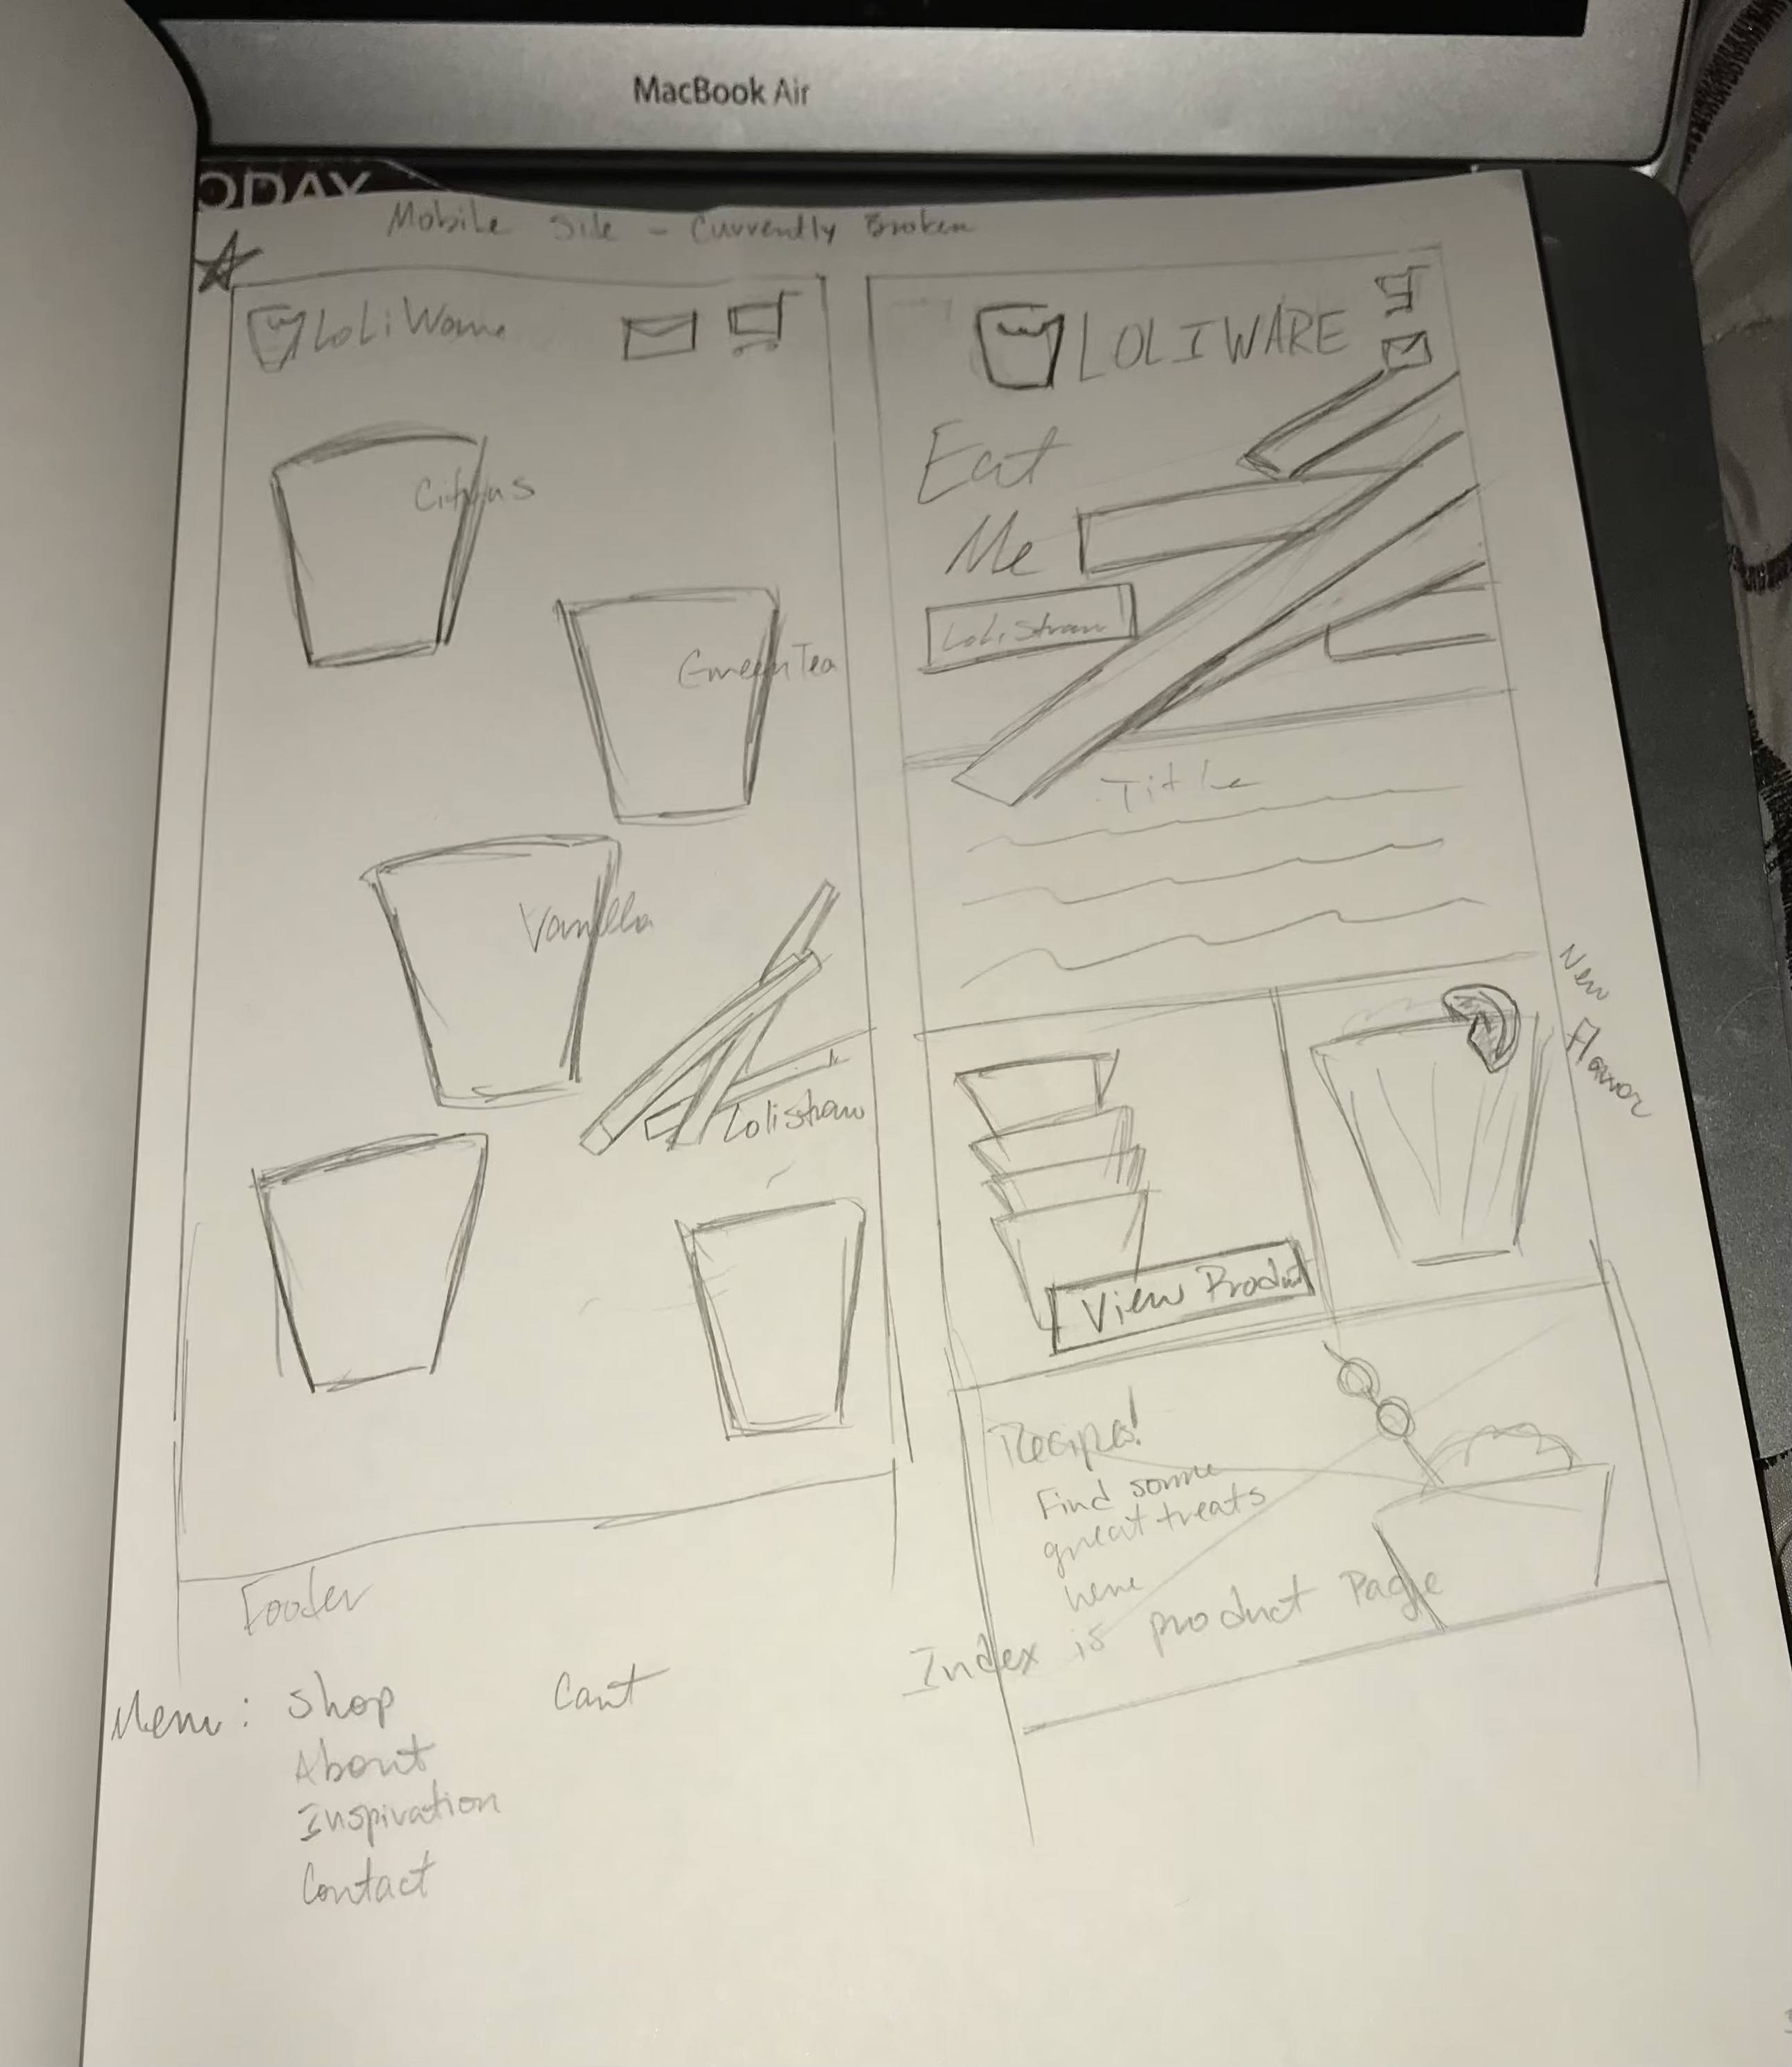 MacBook Air
ODAY
Mobile Site - Currently Broken
LoLiWare
Citrus
Green Tea
Vanilla
Lolistraw
Footer
Menu: Shop
Cart
About
Inspiration
Contact
LOLIWARE
Eat
Me
LoLiStraw
Title
New
Flavor
View Product
Recipes!
Find some
great treats
here
Index is product Page